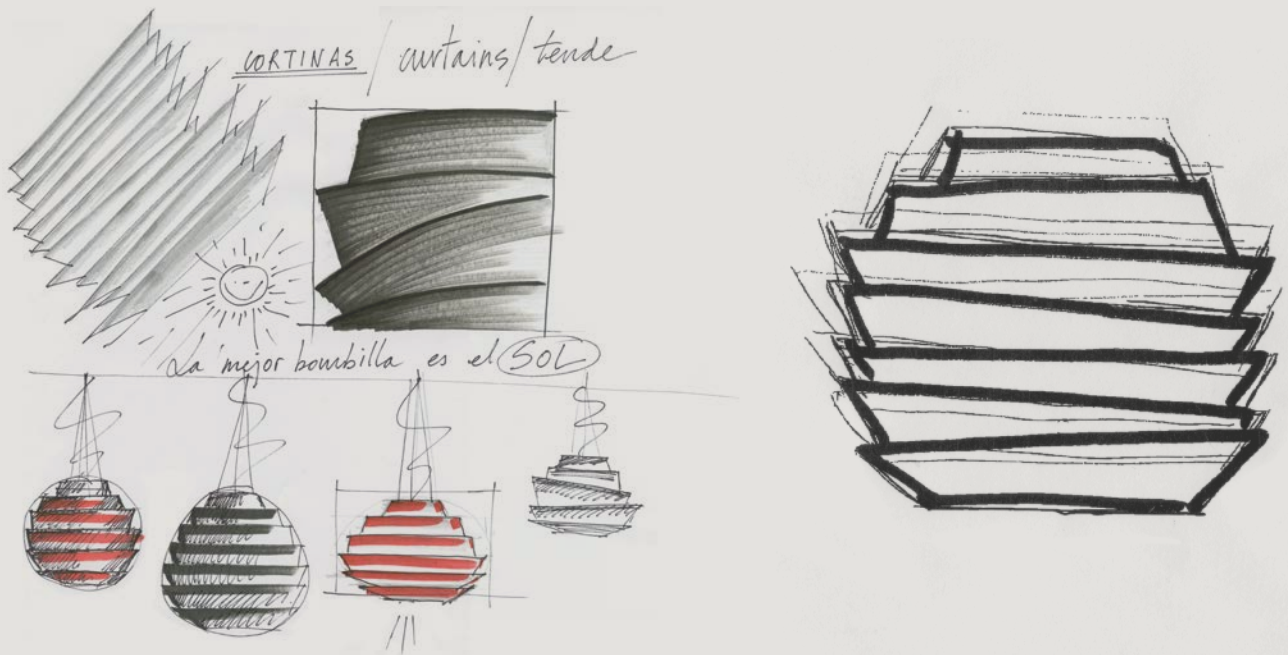 CORTINAS / curtains / tende
La mejor bombilla es el SOL